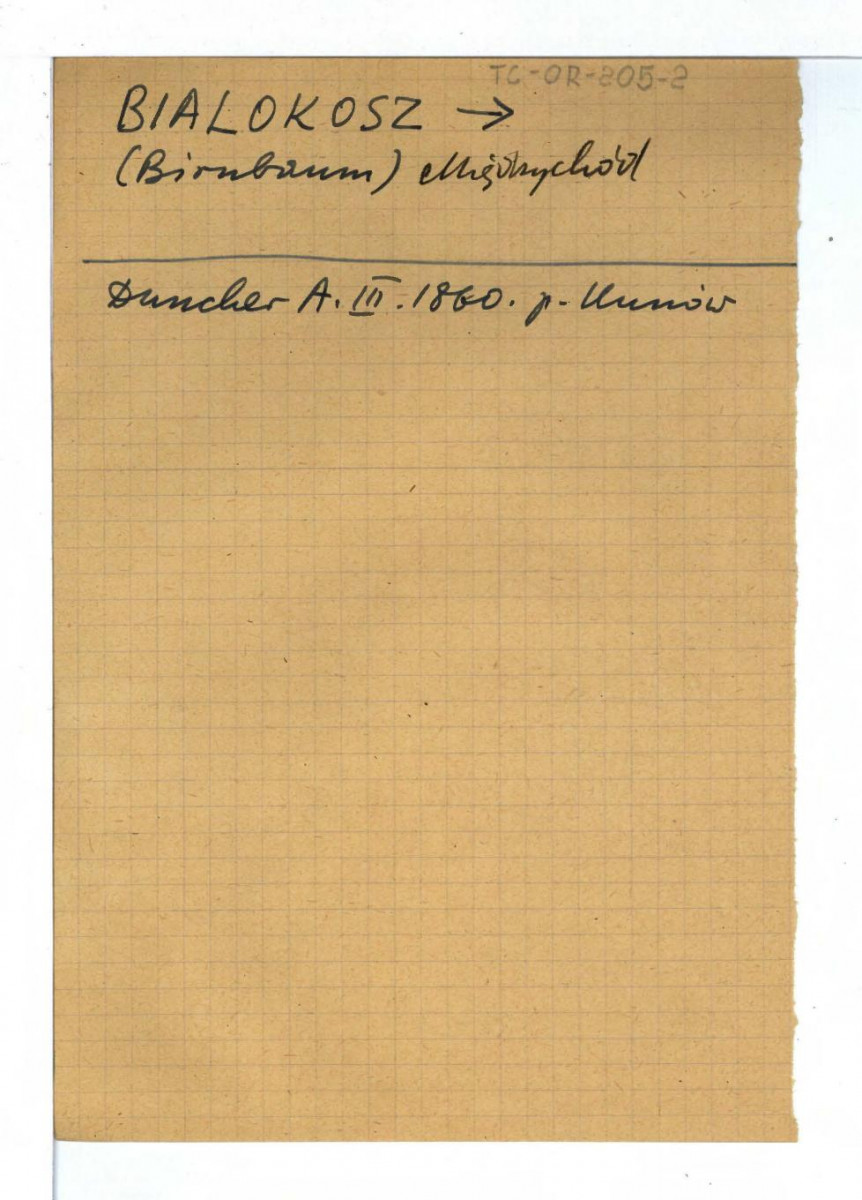 TC-OR-805-2
BIALOKOSZ →
(Birnbaum) Międzychód
Duncker A. III. 1860. p. Kunów